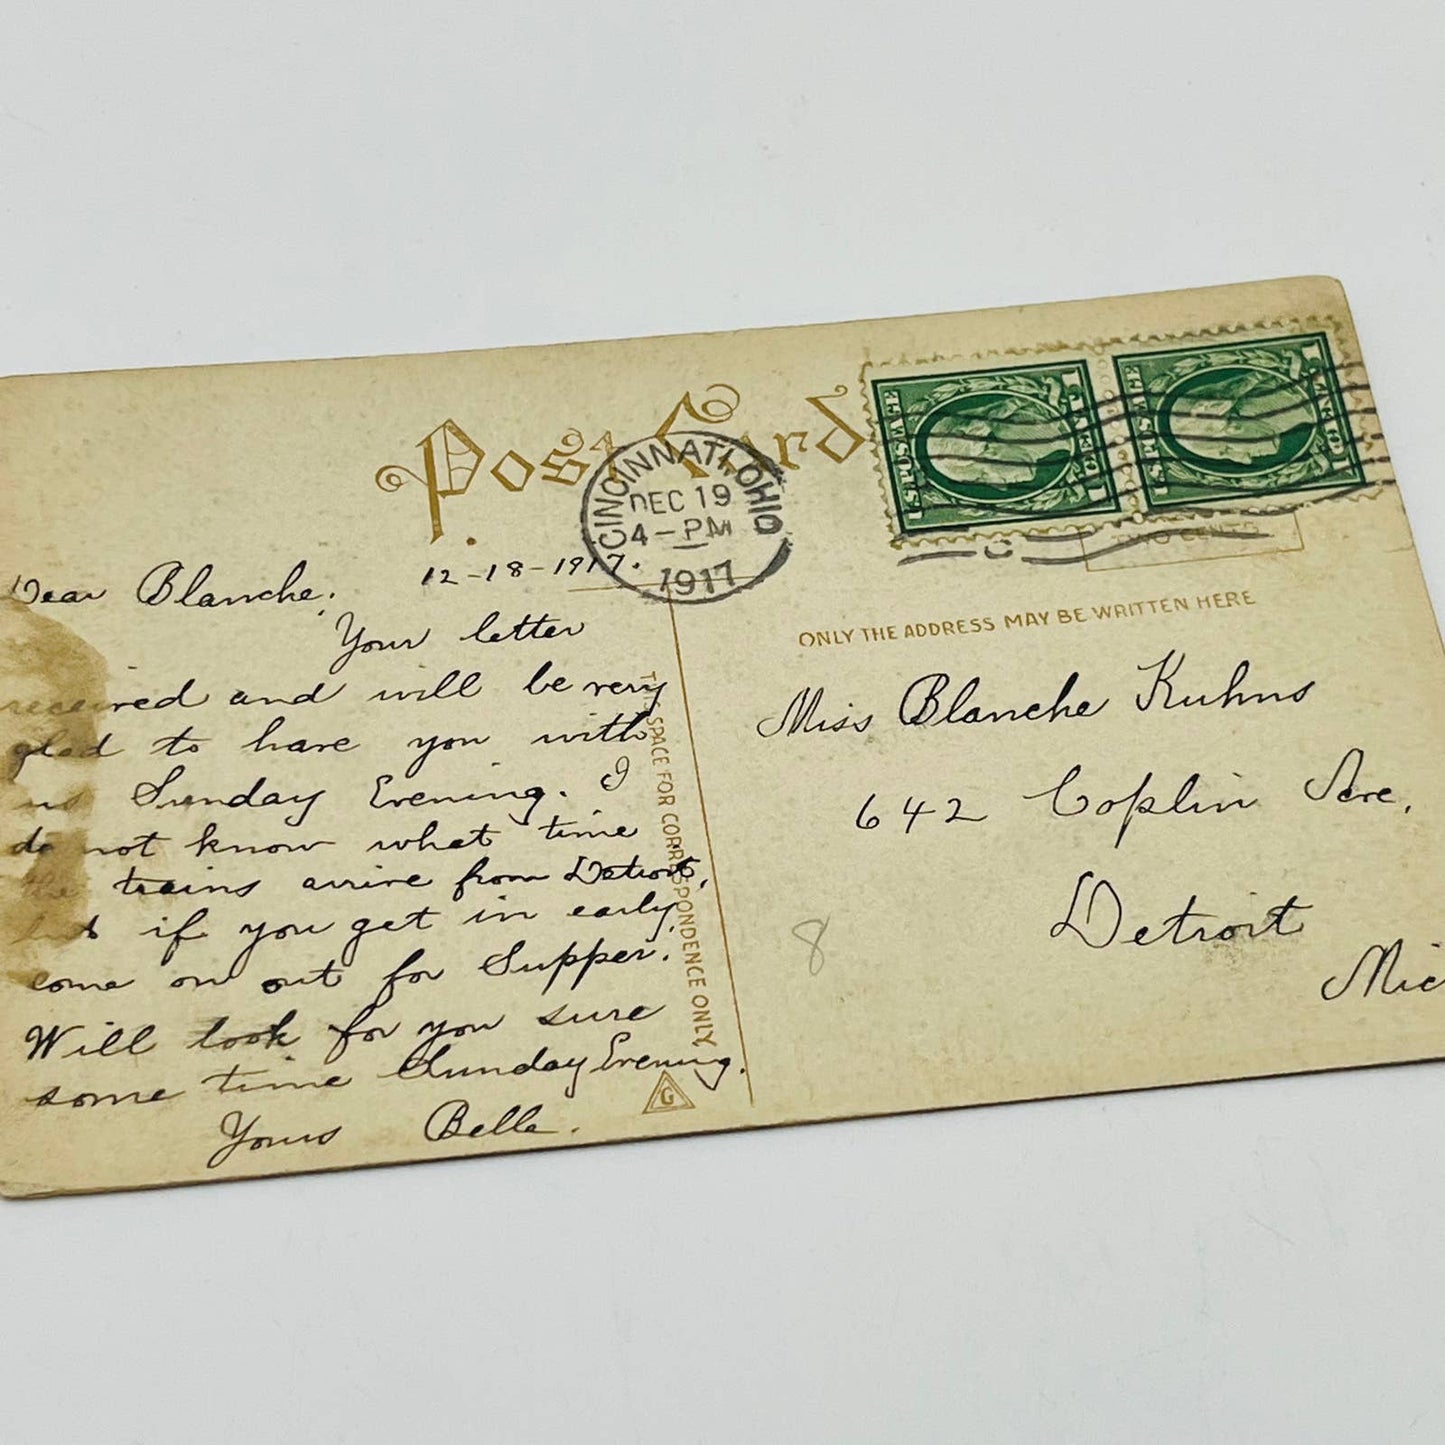 Post Card
CINCINNATI, OHIO
DEC 19
4-PM
1917
1 CENT 1
U.S. POSTAGE
1 CENT 1
U.S. POSTAGE
TWO CENTS
12-18-1917.
Dear Blanche.
Your letter
received and will be very
glad to have you with
us Sunday Evening. I
do not know what time
the trains arrive from Detroit,
but if you get in early,
come on out for Supper.
Will look for you sure
some time Sunday Evening.
Yours Belle.
THIS SPACE FOR CORRESPONDENCE ONLY
G
ONLY THE ADDRESS MAY BE WRITTEN HERE
Miss Blanche Kuhns
642 Coplin Ave.
Detroit
Mic
8